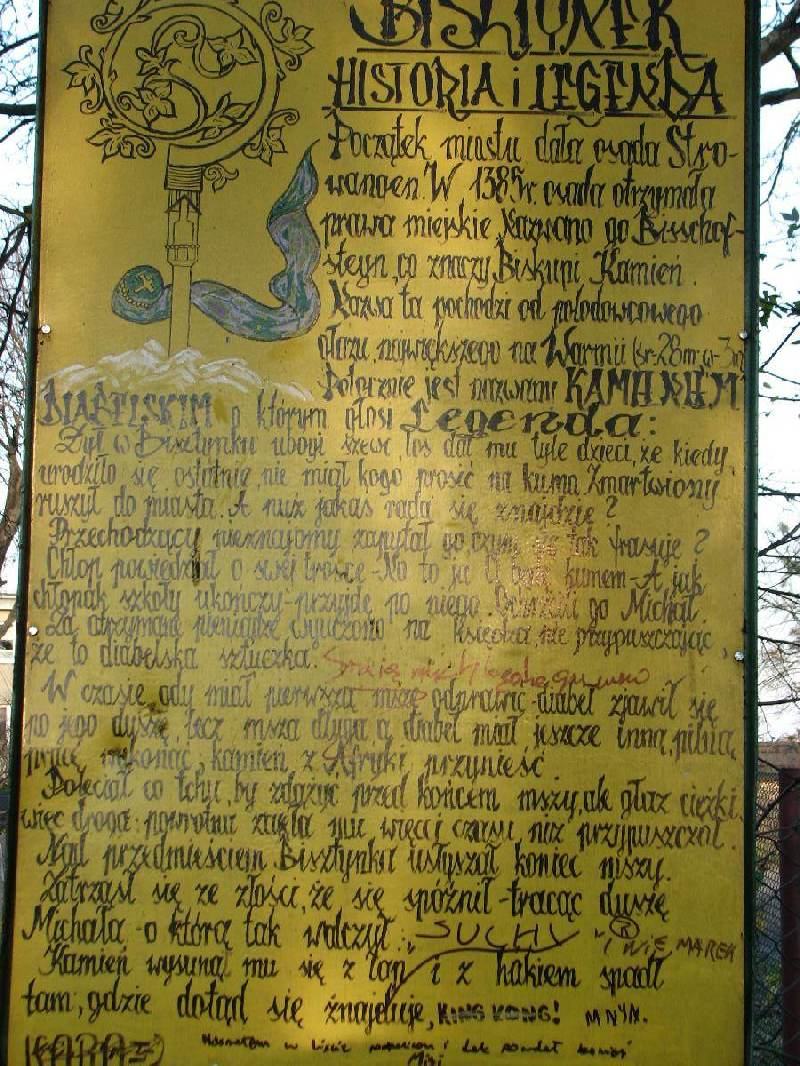 BISZTYNEK
HISTORIA i LEGENDA
Początek miastu dała osada Stro-
wangen. W 1385r. osada otrzymała
prawa miejskie. Nazwano go Bisschof-
steyn, co znaczy Biskupi Kamień.
Nazwa ta pochodzi od polodowcowego
głazu, największego na Warmii (śr-28m, w-3m)
Potocznie jest nazwany KAMIENIEM
DIABELSKIM o którym głosi Legenda:
Żył w Bisztynku ubogi szewc, los dał mu tyle dzieci, że kiedy
urodziło się ostatnie, nie miał kogo prosić na kuma. Zmartwiony
ruszył do miasta. A nuż jakaś rada się znajdzie?
Przechodzący nieznajomy zapytał go, czym się tak frasuje?
Chłop powiedział o swej trosce - No to ja Ci będę kumem - A jak
chłopak szkoły ukończy - przyjdę po niego. Ochrzcili go Michał.
Za otrzymane pieniądze wyuczono na księdza, nie przypuszczając,
że to diabelska sztuczka.
W czasie, gdy miał pierwszą mszę odprawić - diabeł zjawił się
po jego duszę, lecz msza długa, a diabeł miał jeszcze inną, pilną,
pracę wykonać, kamień z Afryki przynieść.
Poleciał co tchu, by zdążyć przed końcem mszy, ale głaz ciężki,
więc droga powrotna zajęła mu więcej czasu, niż przypuszczał.
Nad przedmieściem Bisztynka usłyszał koniec mszy.
Zatrząsł się ze złości, że się spóźnił - tracąc duszę
Michała - o którą tak walczył. "SUCHY" ®
i NIE MAREK
Kamień wysunął mu się z łap i z hakiem spadł
tam, gdzie dotąd się znajduje, KING KONG! MNYN.